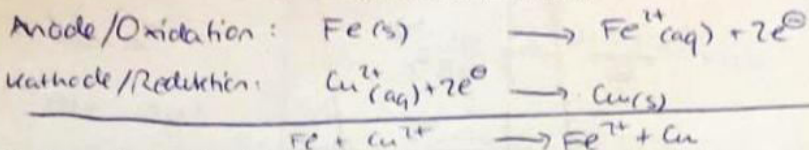 Anode/Oxidation: Fe(s) → Fe²⁺(aq) + 2e⊖
Kathode/Reduktion: Cu²⁺(aq) + 2e⊖ → Cu(s)
Fe + Cu²⁺ → Fe²⁺ + Cu